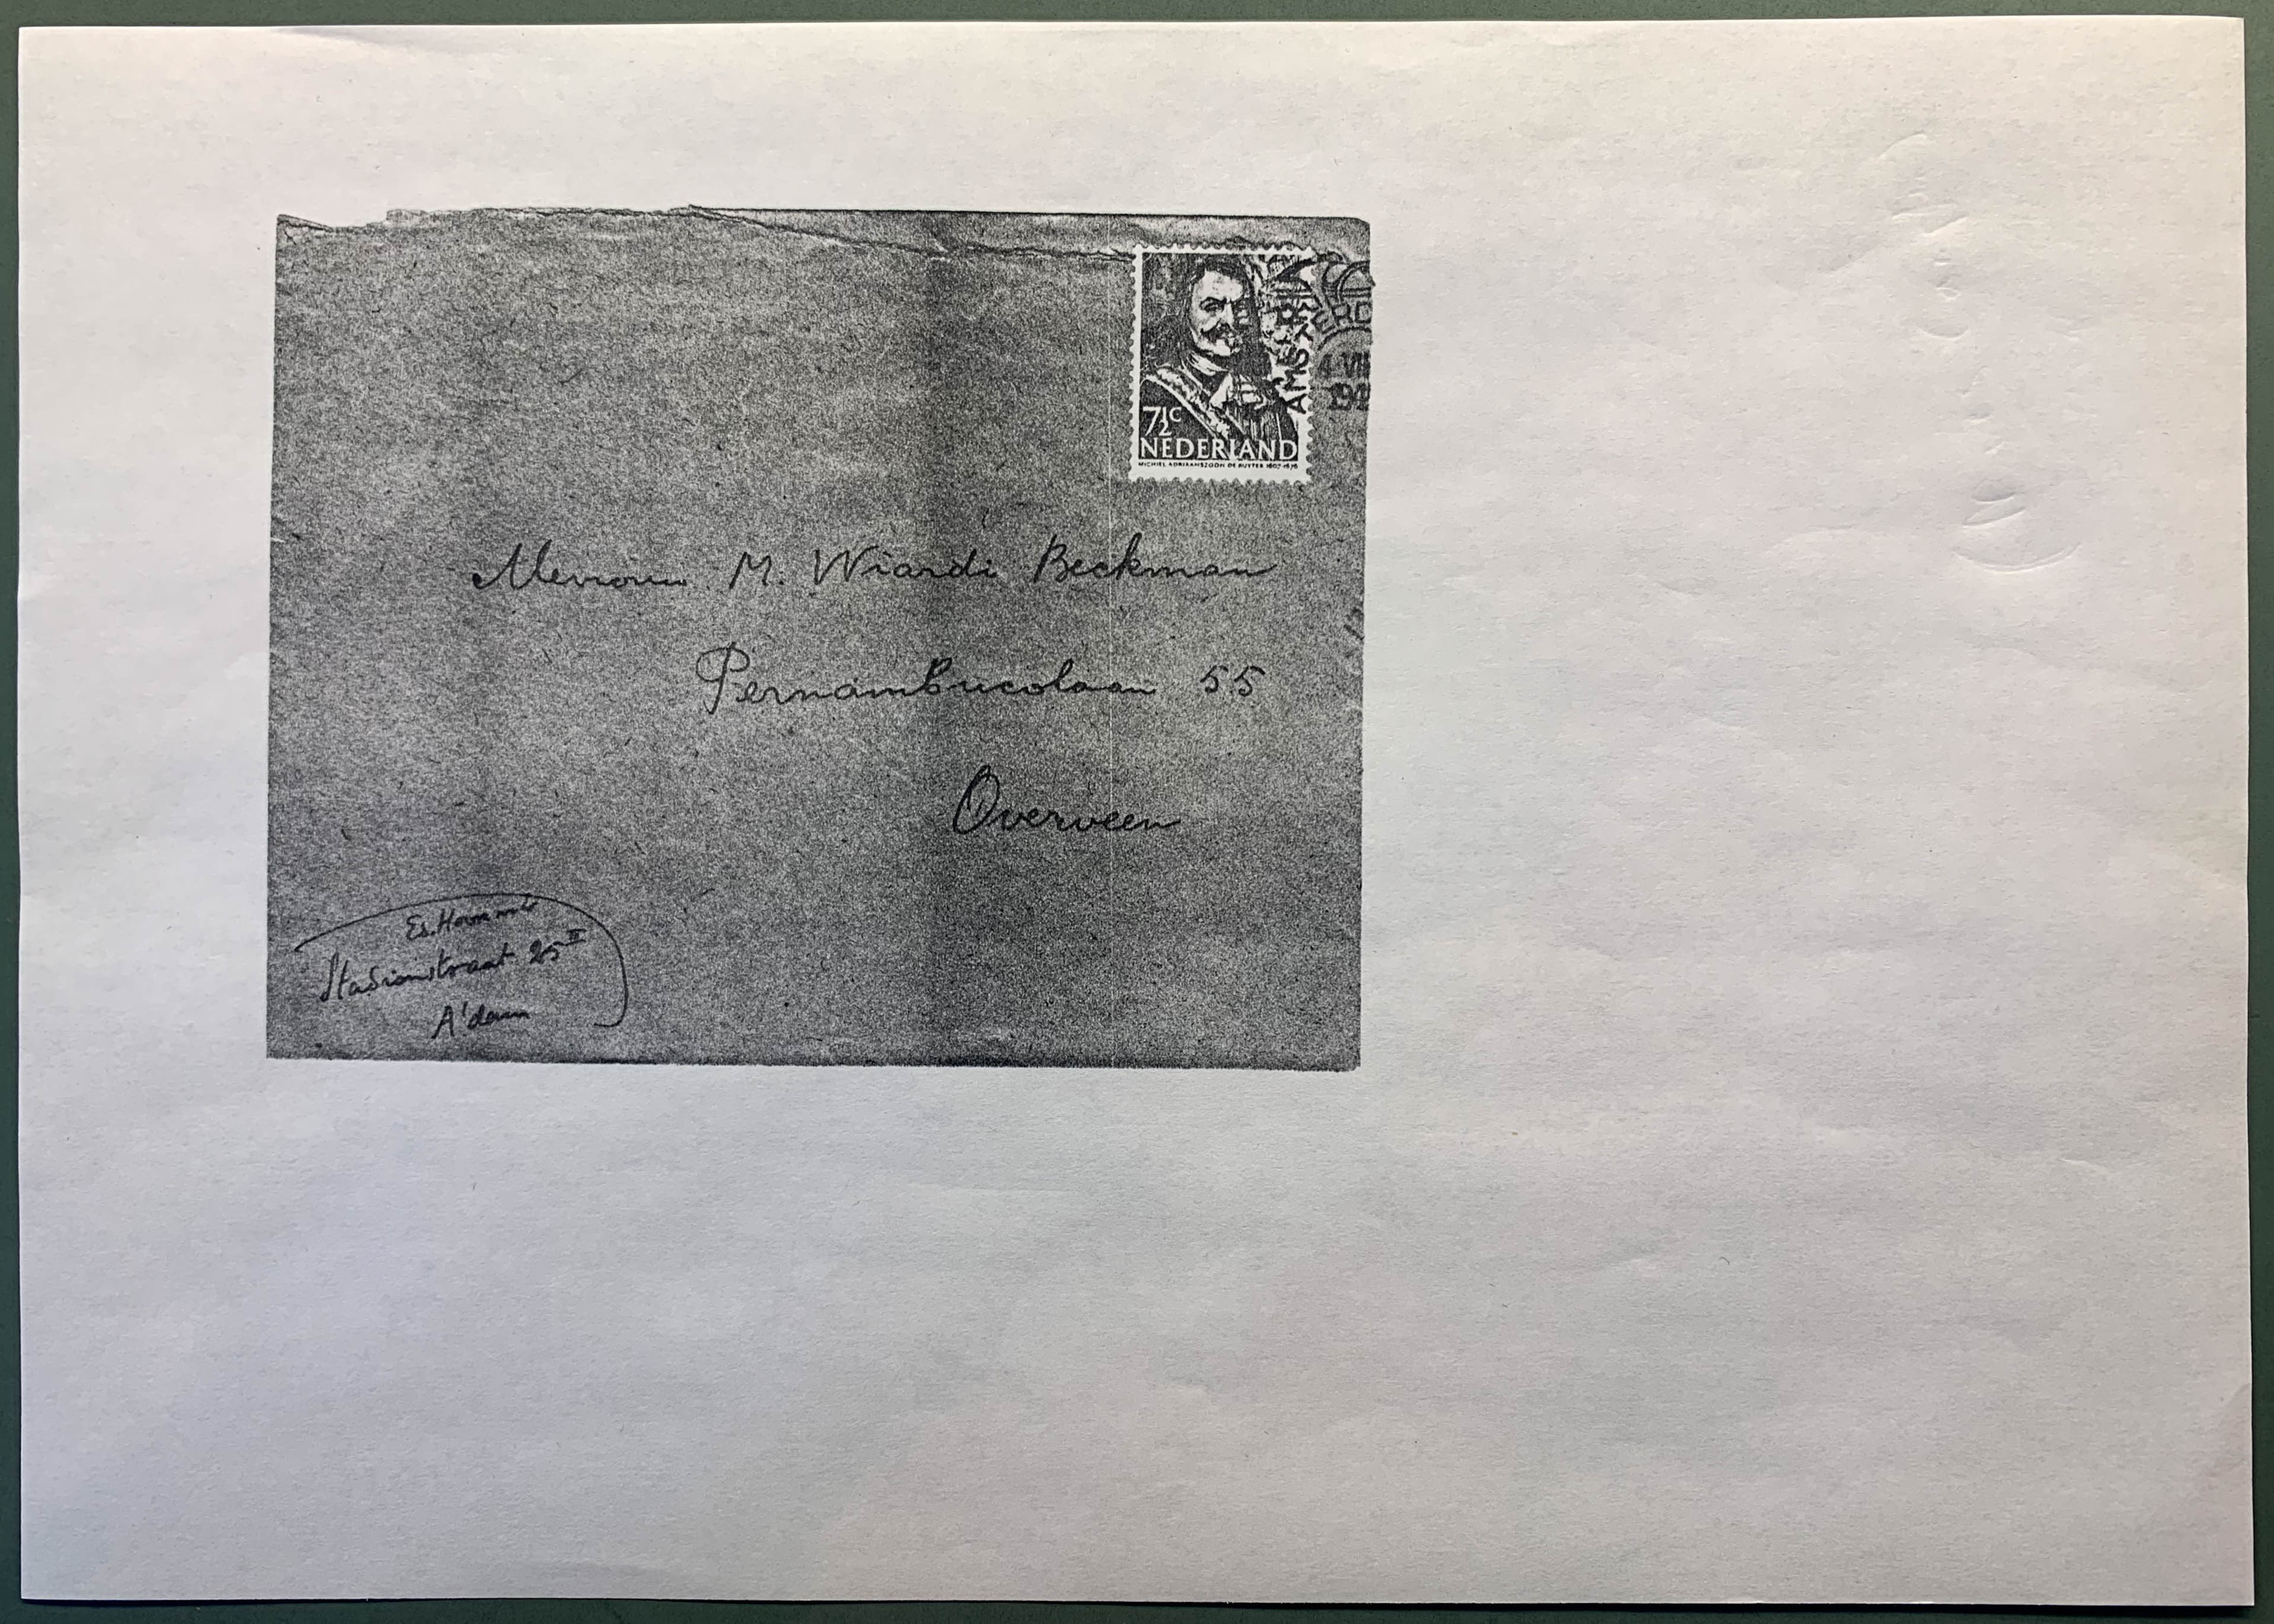 7½c
NEDERLAND
MICHIEL ADRIAANSZOON DE RUYTER 1607-1676
AMSTERD
4 VII
194
Mevrouw M. Wiardi Beckman
Pernambucolaan 55
Overveen
Stadionstraat 25 II
A'dam